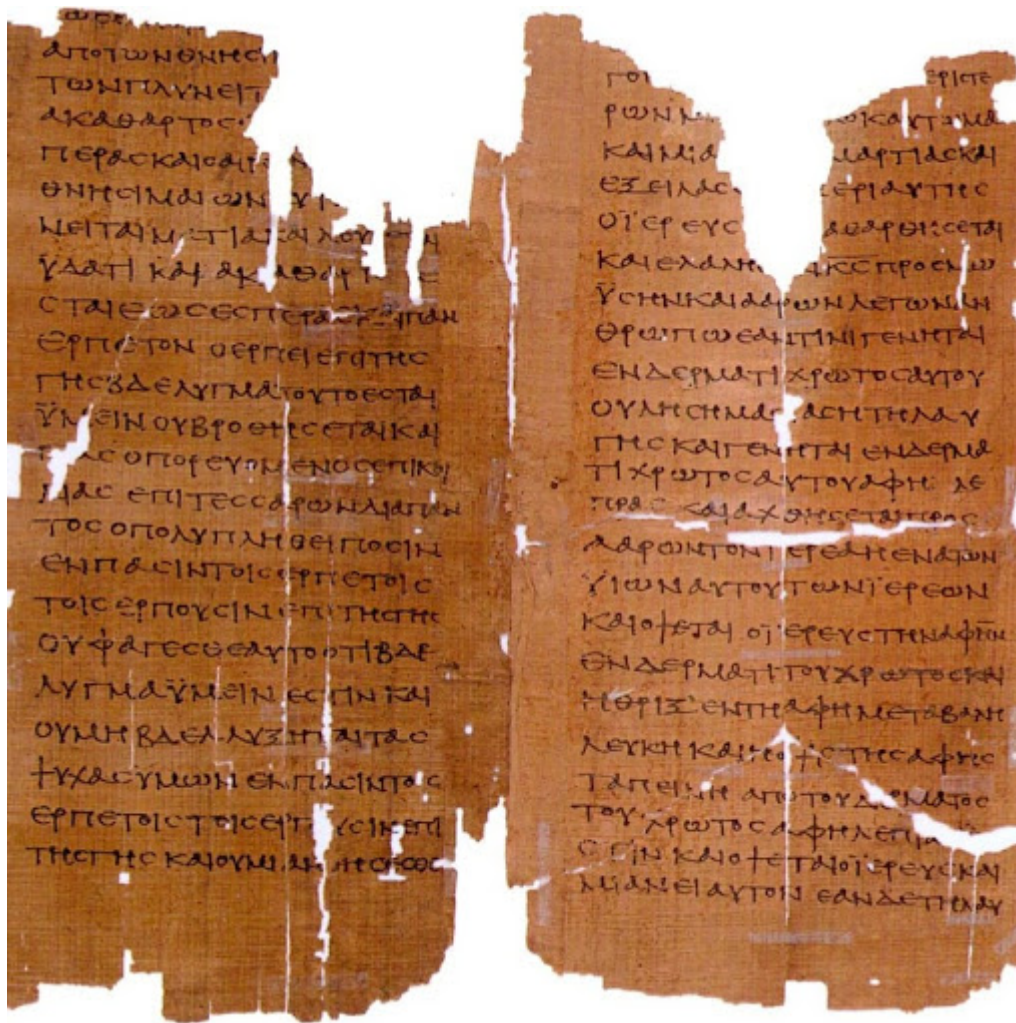 ΑΠΟΤΩΝΘΝΗΣΙ
ΤΩΝΠΛΥΝΕΙΤ
ΑΚΑΘΑΡΤΟΣ
ΠΕΡΑΣΚΑΙΟΑΙΡ
ΘΝΗΣΙΜΑΙΩΝ
ΝΕΙΤΑΙΜΑΤΙΑΚΑΙΛΟΥ
ΫΔΑΤΙ ΚΑΙ ΑΚΑΘΑΡΤ
ΣΤΑΙΕΩΣΕΣΠΕΡΑΣΚΑΙΠΑΝ
ΕΡΠΕΤΟΝ ΟΕΡΠΕΙΕΠΙΤΗΣ
ΓΗΣΒΔΕΛΥΓΜΑΤΟΥΤΟΕΣΤΑΙ
ΫΜΕΙΝΟΥΒΡΩΘΗΣΕΤΑΙΚΑΙ
ΟΠΟΡΕΥΟΜΕΝΟΣΕΠΙΚΟΙ
ΛΙΑΣ ΕΠΙΤΕΣΣΑΡΩΝΔΙΑΠΑΝ
ΤΟΣΟΠΟΛΥΠΛΗΘΕΙΠΟΣΙΝ
ΕΝΠΑΣΙΝΤΟΙΣΕΡΠΕΤΟΙΣ
ΤΟΙΣΕΡΠΟΥΣΙΝΕΠΙΤΗΣΓΗΣ
ΟΥΦΑΓΕΣΘΕΑΥΤΟΟΤΙΒΔΕ
ΛΥΓΜΑΫΜΕΙΝΕΣΤΙΝΚΑΙ
ΟΥΜΗΒΔΕΛΛΥΞΗΤΑΙΤΑΣ
ΨΥΧΑΣΥΜΩΝΕΝΠΑΣΙΝΤΟΙΣ
ΕΡΠΕΤΟΙΣΤΟΙΣΕΡΠΟΥΣΙΝΕΠΙ
ΤΗΣΓΗΣ ΚΑΙΟΥΜΙΑΝΘΗΣΕΣΘΕ
ΓΟΙ ΕΡΙΣΤΕ
ΡΩΝΜ ΩΚΑΥΤΩΜΑ
ΚΑΙΜΙΑ ΜΑΡΤΙΑΣΚΑΙ
ΕΞΕΙΛΑΣ ΠΕΡΙΑΥΤΗΣ
ΟΪΕΡΕΥΣ ΑΘΑΡΘΗΣΕΤΑΙ
ΚΑΙΕΛΑΛΗΣ ΚΣΠΡΟΣΜΩ
ΫΣΗΝΚΑΙΑΑΡΩΝΛΕΓΩΝΑΝ
ΘΡΩΠΩΕΑΝΤΙΝΙΓΕΝΗΤΑΙ
ΕΝΔΕΡΜΑΤΙΧΡΩΤΟΣΑΥΤΟΥ
ΟΥΛΗΣΗΜΑΣΙΑΣΗΤΗΛΑΥ
ΓΗΣ ΚΑΙΓΕΝΗΤΑΙ ΕΝΔΕΡΜΑ
ΤΙΧΡΩΤΟΣΑΥΤΟΥΑΦΗ ΛΕ
ΠΡΑΣ ΚΑΙΑΧΘΗΣΕΤΑΙΠΡΟΣ
ΑΑΡΩΝΤΟΝΪΕΡΕΑΗΕΝΑΤΩΝ
ΫΙΩΝΑΥΤΟΥΤΩΝΪΕΡΕΩΝ
ΚΑΙΟΨΕΤΑΙ ΟΪΕΡΕΥΣΤΗΝΑΦΗΝ
ΕΝΔΕΡΜΑΤΙΤΟΥΧΡΩΤΟΣΚΑΙ
ΗΘΡΙΞΕΝΤΗΑΦΗΜΕΤΑΒΑΛΗ
ΛΕΥΚΗΚΑΙΗΟΨΙΣΤΗΣΑΦΗΣ
ΤΑΠΕΙΝΗ ΑΠΟΤΟΥΔΕΡΜΑΤΟΣ
ΤΟΥ ΧΡΩΤΟΣΑΦΗΛΕΠΡΑ
ΣΤΙΝ ΚΑΙΟΨΕΤΑΙΟΪΕΡΕΥΣΚΑΙ
ΜΙΑΝΕΙΑΥΤΟΝ ΕΑΝΔΕΤΗΛΑΥ